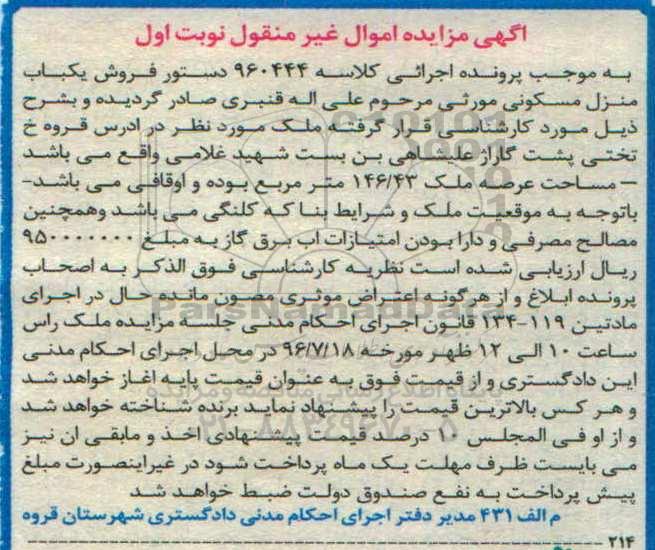 اگهی مزایده اموال غیر منقول نوبت اول
به موجب پرونده اجرائی کلاسه ۹۶۰۴۴۴ دستور فروش یکباب
منزل مسکونی مورثی مرحوم علی اله قنبری صادر گردیده و بشرح
ذیل مورد کارشناسی قرار گرفته ملک مورد نظر در ادرس قروه خ
تختی پشت گاراژ علیشاهی بن بست شهید غلامی واقع می باشد
– مساحت عرصه ملک ۱۴۶/۴۳ متر مربع بوده و اوقافی می باشد-
باتوجه به موقعیت ملک و شرایط بنا که کلنگی می باشد وهمچنین
مصالح مصرفی و دارا بودن امتیازات اب برق گاز به مبلغ ۹۵۰۰۰۰۰۰۰
ریال ارزیابی شده است نظریه کارشناسی فوق الذکر به اصحاب
پرونده ابلاغ و از هرگونه اعتراض موثری مصون مانده حال در اجرای
مادتین ۱۱۹-۱۳۴ قانون اجرای احکام مدنی جلسه مزایده ملک راس
ساعت ۱۰ الی ۱۲ ظهر مورخه ۹۶/۷/۱۸ در محل اجرای احکام مدنی
این دادگستری و از قیمت فوق به عنوان قیمت پایه اغاز خواهد شد
و هر کس بالاترین قیمت را پیشنهاد نماید برنده شناخته خواهد شد
و از او فی المجلس ۱۰ درصد قیمت پیشنهادی اخذ و مابقی ان نیز
می بایست ظرف مهلت یک ماه پرداخت شود در غیراینصورت مبلغ
پیش پرداخت به نفع صندوق دولت ضبط خواهد شد
م الف ۴۳۱ مدیر دفتر اجرای احکام مدنی دادگستری شهرستان قروه
۲۱۴
ParsNamadData
۰۲۱-۸۸۳۴۹۶۷۰-۵